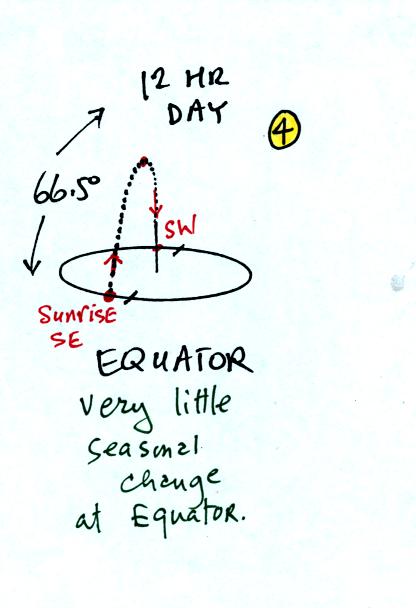 12 HR
DAY
4
66.5°
SW
Sunrise
SE
EQUATOR
Very little
seasonal
change
at Equator.